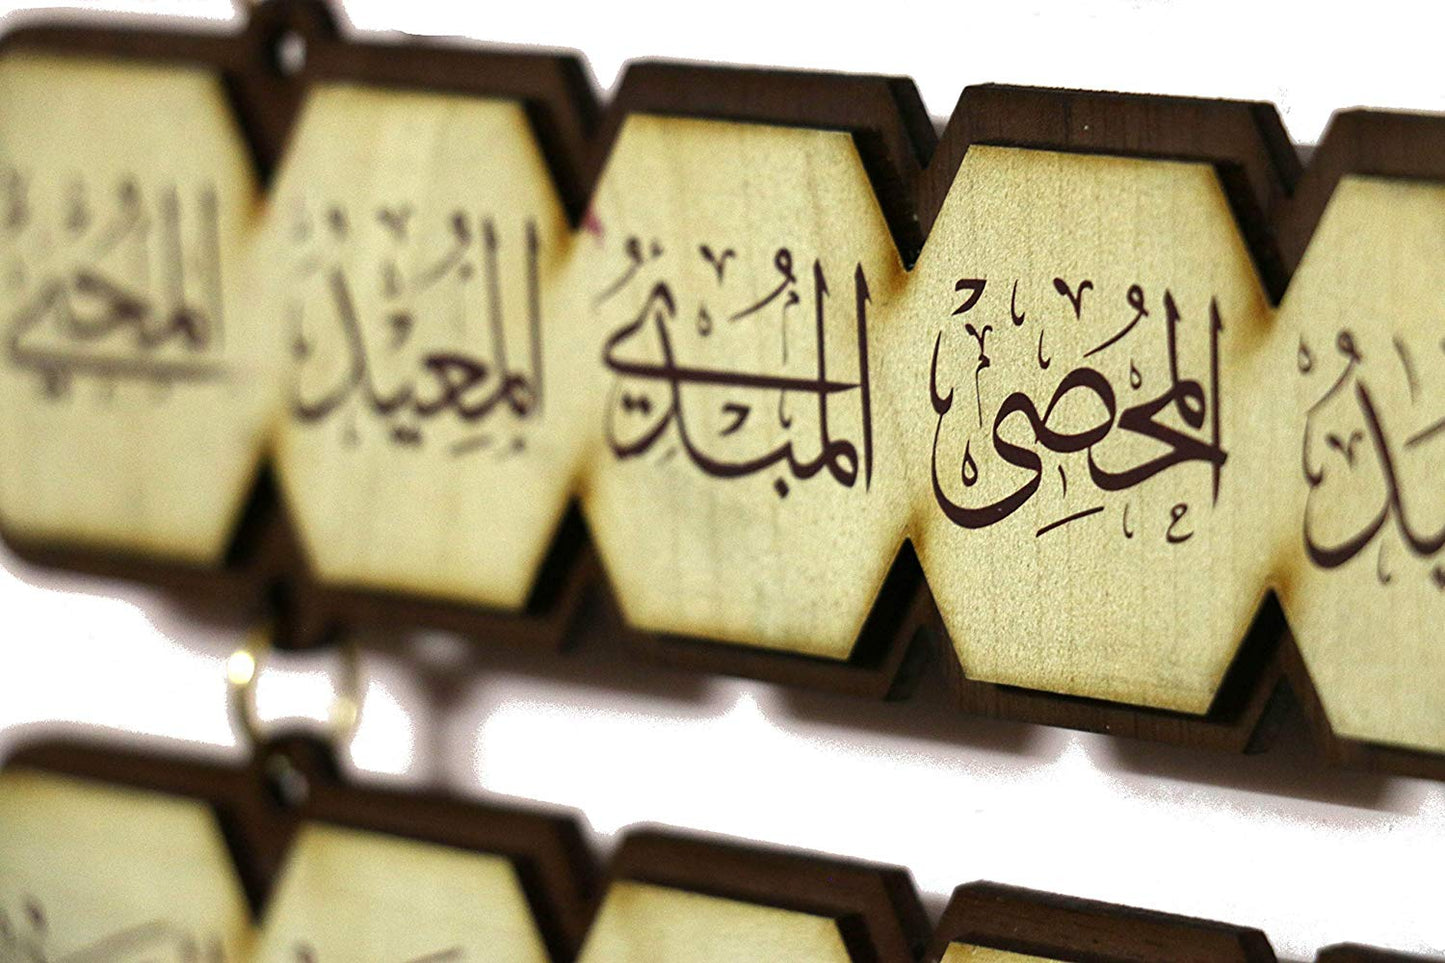 المُحْصِي
المُبْدِئُ
المُعِيدُ
المُحْيِي